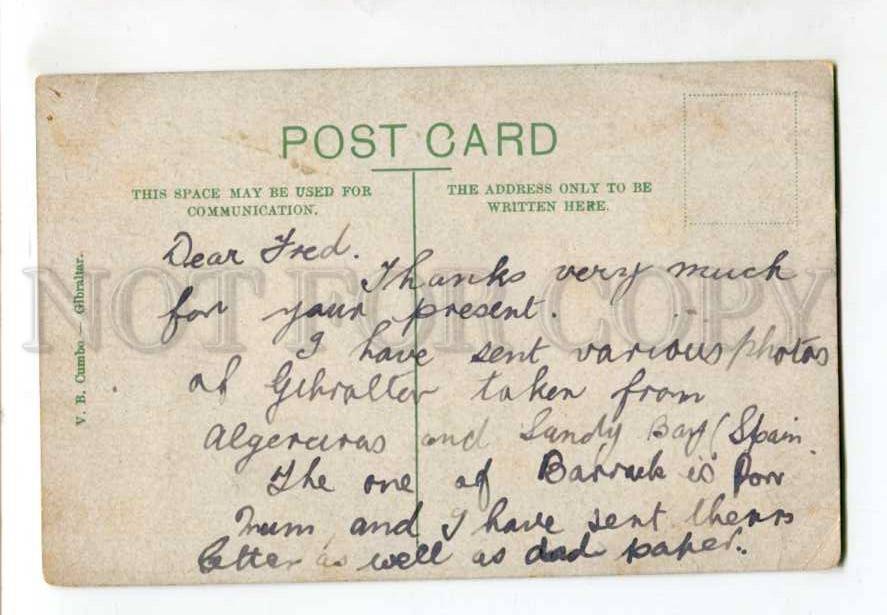 POST CARD
THIS SPACE MAY BE USED FOR
COMMUNICATION.
THE ADDRESS ONLY TO BE
WRITTEN HERE.
V. B. Cumbo. – Gibraltar.
NOT FOR COPY
Dear Fred.
Thanks very much
for your present.
I have sent various photos
of Gibralter taken from
Algeciras and Sandy Bay (Spain
The one of Barrack is for
Mum and I have sent them
letter as well as dad paper.